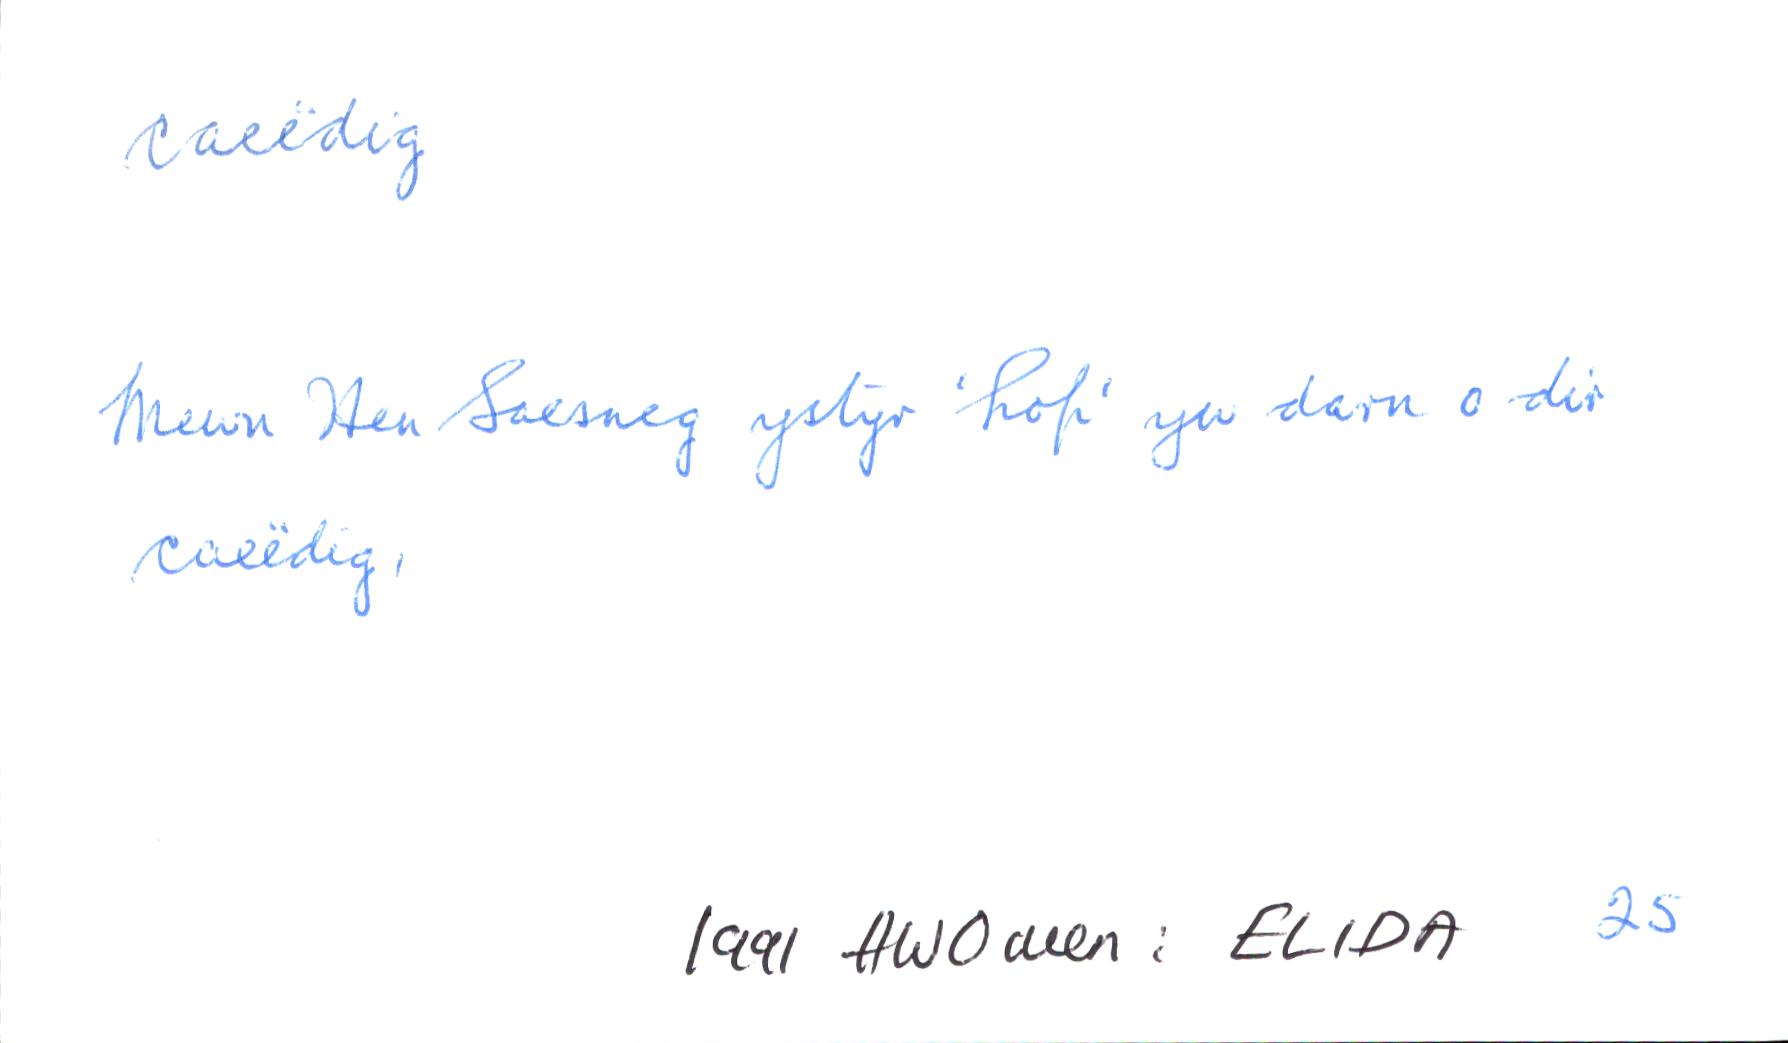 caeëdig
Mewn Hen Saesneg ystyr 'hop' yw darn o dir
caeëdig.
1991 HWOwen: ELIDA 25